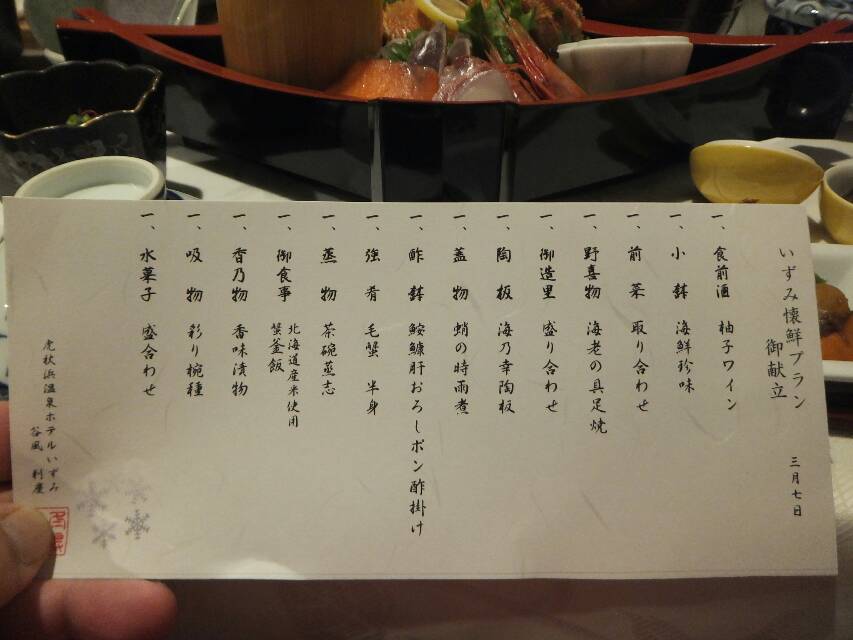 いずみ懐鮮プラン
御献立
三月七日
一、食前酒 柚子ワイン
一、小鉢 海鮮珍味
一、前菜 取り合わせ
一、野喜物 海老の具足焼
一、御造里 盛り合わせ
一、陶板 海乃幸陶板
一、蓋物 蛸の時雨煮
一、酢鉢 鮟鱇肝おろしポン酢掛け
一、強肴 毛蟹 半身
一、蒸物 茶碗蒸志
一、御食事 北海道産米使用
蟹釜飯
一、香乃物 香味漬物
一、吸物 彩り椀種
一、水菓子 盛合わせ
虎杖浜温泉ホテルいずみ
谷風 利慶